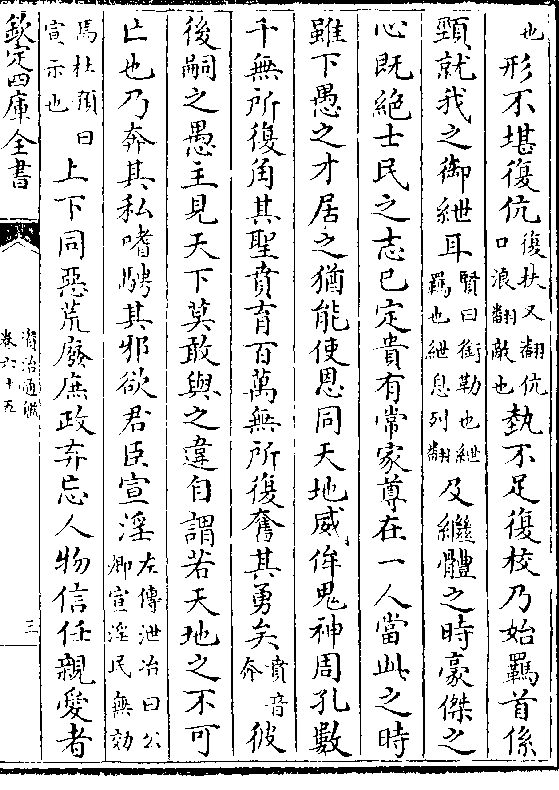 也形不堪復伉復扶又翻伉口浪翻敵也埶不足復校乃始羈首係
頸就我之御紲耳賢曰銜勒也紲羈也紲息列翻及繼體之時豪傑之
心既絶士民之志已定貴有常家尊在一人當此之時
雖下愚之才居之猶能使恩同天地威侔鬼神周孔數
千無所復角其聖賁育百萬無所復奮其勇矣賁音奔彼
後嗣之愚主見天下莫敢與之違自謂若天地之不可
亡也乃奔其私嗜騁其邪欲君臣宣淫左傳泄冶曰公卿宣淫民無効
焉杜預曰宣示也上下同惡荒廢庶政弃忘人物信任親愛者
欽定四庫全書
資治通鑑
卷六十五
三